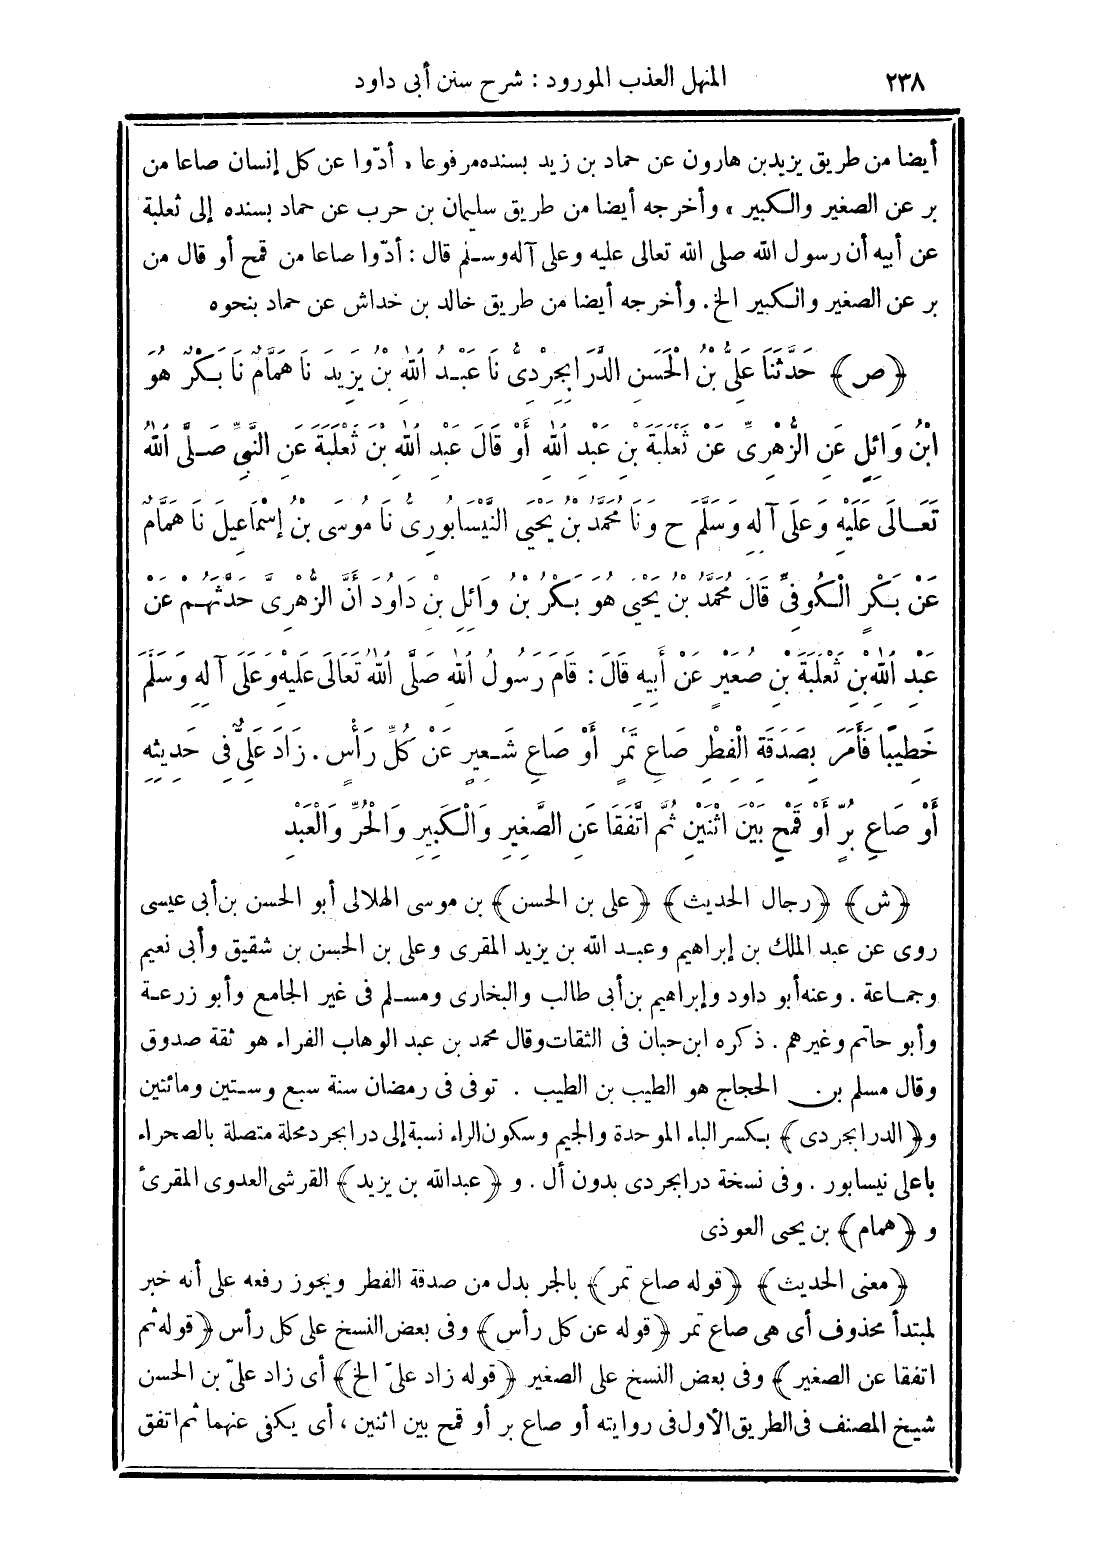 ٢٣٨ المنهل العذب المورود : شرح سنن أبى داود
أيضا من طريق يزيد بن هارون عن حماد بن زيد بسنده مرفوعا « أدّوا عن كل إنسان صاعا من
بر عن الصغير والكبير » وأخرجه أيضا من طريق سليمان بن حرب عن حماد بسنده إلى ثعلبة
عن أبيه أن رسول الله صلى الله تعالى عليه وعلى آله وسلم قال : أدّوا صاعا من قمح أو قال من
بر عن الصغير والكبير الخ . وأخرجه أيضا من طريق خالد بن خداش عن حماد بنحوه
﴿ص﴾ حَدَّثَنَا عَلِىُّ بْنُ الْحَسَنِ الدَّرَابِجِرْدِىُّ نَا عَبْدُ اللهِ بْنُ يَزِيدَ نَا هَمَّامٌ نَا بَكْرٌ هُوَ
ابْنُ وَائِلٍ عَنِ الزُّهْرِىِّ عَنْ ثَعْلَبَةَ بْنِ عَبْدِ اللهِ أَوْ قَالَ عَبْدِ اللهِ بْنِ ثَعْلَبَةَ عَنِ النَّبِىِّ صَلَّى اللهُ
تَعَالَى عَلَيْهِ وَعَلَى آلِهِ وَسَلَّمَ ح وَنَا مُحَمَّدُ بْنُ يَحْيَى النَّيْسَابُورِىُّ نَا مُوسَى بْنُ إِسْمَاعِيلَ نَا هَمَّامٌ
عَنْ بَكْرٍ الْكُوفِىِّ قَالَ مُحَمَّدُ بْنُ يَحْيَى هُوَ بَكْرُ بْنُ وَائِلِ بْنِ دَاوُدَ أَنَّ الزُّهْرِىَّ حَدَّثَهُمْ عَنْ
عَبْدِ اللهِ بْنِ ثَعْلَبَةَ بْنِ صُعَيْرٍ عَنْ أَبِيهِ قَالَ : قَامَ رَسُولُ اللهِ صَلَّى اللهُ تَعَالَى عَلَيْهِ وَعَلَى آلِهِ وَسَلَّمَ
خَطِيبًا فَأَمَرَ بِصَدَقَةِ الْفِطْرِ صَاعِ تَمْرٍ أَوْ صَاعِ شَعِيرٍ عَنْ كُلِّ رَأْسٍ . زَادَ عَلِىٌّ فِى حَدِيثِهِ
أَوْ صَاعِ بُرٍّ أَوْ قَمْحٍ بَيْنَ اثْنَيْنِ ثُمَّ اتَّفَقَا عَنِ الصَّغِيرِ وَالْكَبِيرِ وَالْحُرِّ وَالْعَبْدِ
﴿ش﴾ ﴿رجال الحديث﴾ ﴿على بن الحسن﴾ بن موسى الهلالى أبو الحسن بن أبى عيسى
روى عن عبد الملك بن إبراهيم وعبد الله بن يزيد المقرى وعلى بن الحسن بن شقيق وأبى نعيم
وجماعة . وعنه أبو داود وإبراهيم بن أبى طالب والبخارى ومسلم فى غير الجامع وأبو زرعة
وأبو حاتم وغيرهم . ذكره ابن حبان فى الثقات وقال محمد بن عبد الوهاب الفراء هو ثقة صدوق
وقال مسلم بن الحجاج هو الطيب بن الطيب . توفى فى رمضان سنة سبع وستين ومائتين
و﴿الدرابجردى﴾ بكسر الباء الموحدة والجيم وسكون الراء نسبة إلى درابجرد محلة متصلة بالصحراء
بأعلى نيسابور . وفى نسخة درابجردى بدون أل . و ﴿عبدالله بن يزيد﴾ القرشى العدوى المقرئ
و ﴿همام﴾ بن يحيى العوذى
﴿معنى الحديث﴾ ﴿قوله صاع تمر﴾ بالجر بدل من صدقة الفطر ويجوز رفعه على أنه خبر
لمبتدأ محذوف أى هى صاع تمر ﴿قوله عن كل رأس﴾ وفى بعض النسخ على كل رأس ﴿قوله ثم
اتفقا عن الصغير﴾ وفى بعض النسخ على الصغير ﴿قوله زاد علىّ الخ﴾ أى زاد علىّ بن الحسن
شيخ المصنف فى الطريق الأول فى روايته أو صاع بر أو قمح بين اثنين ، أى يكفى عنهما ثم اتفق